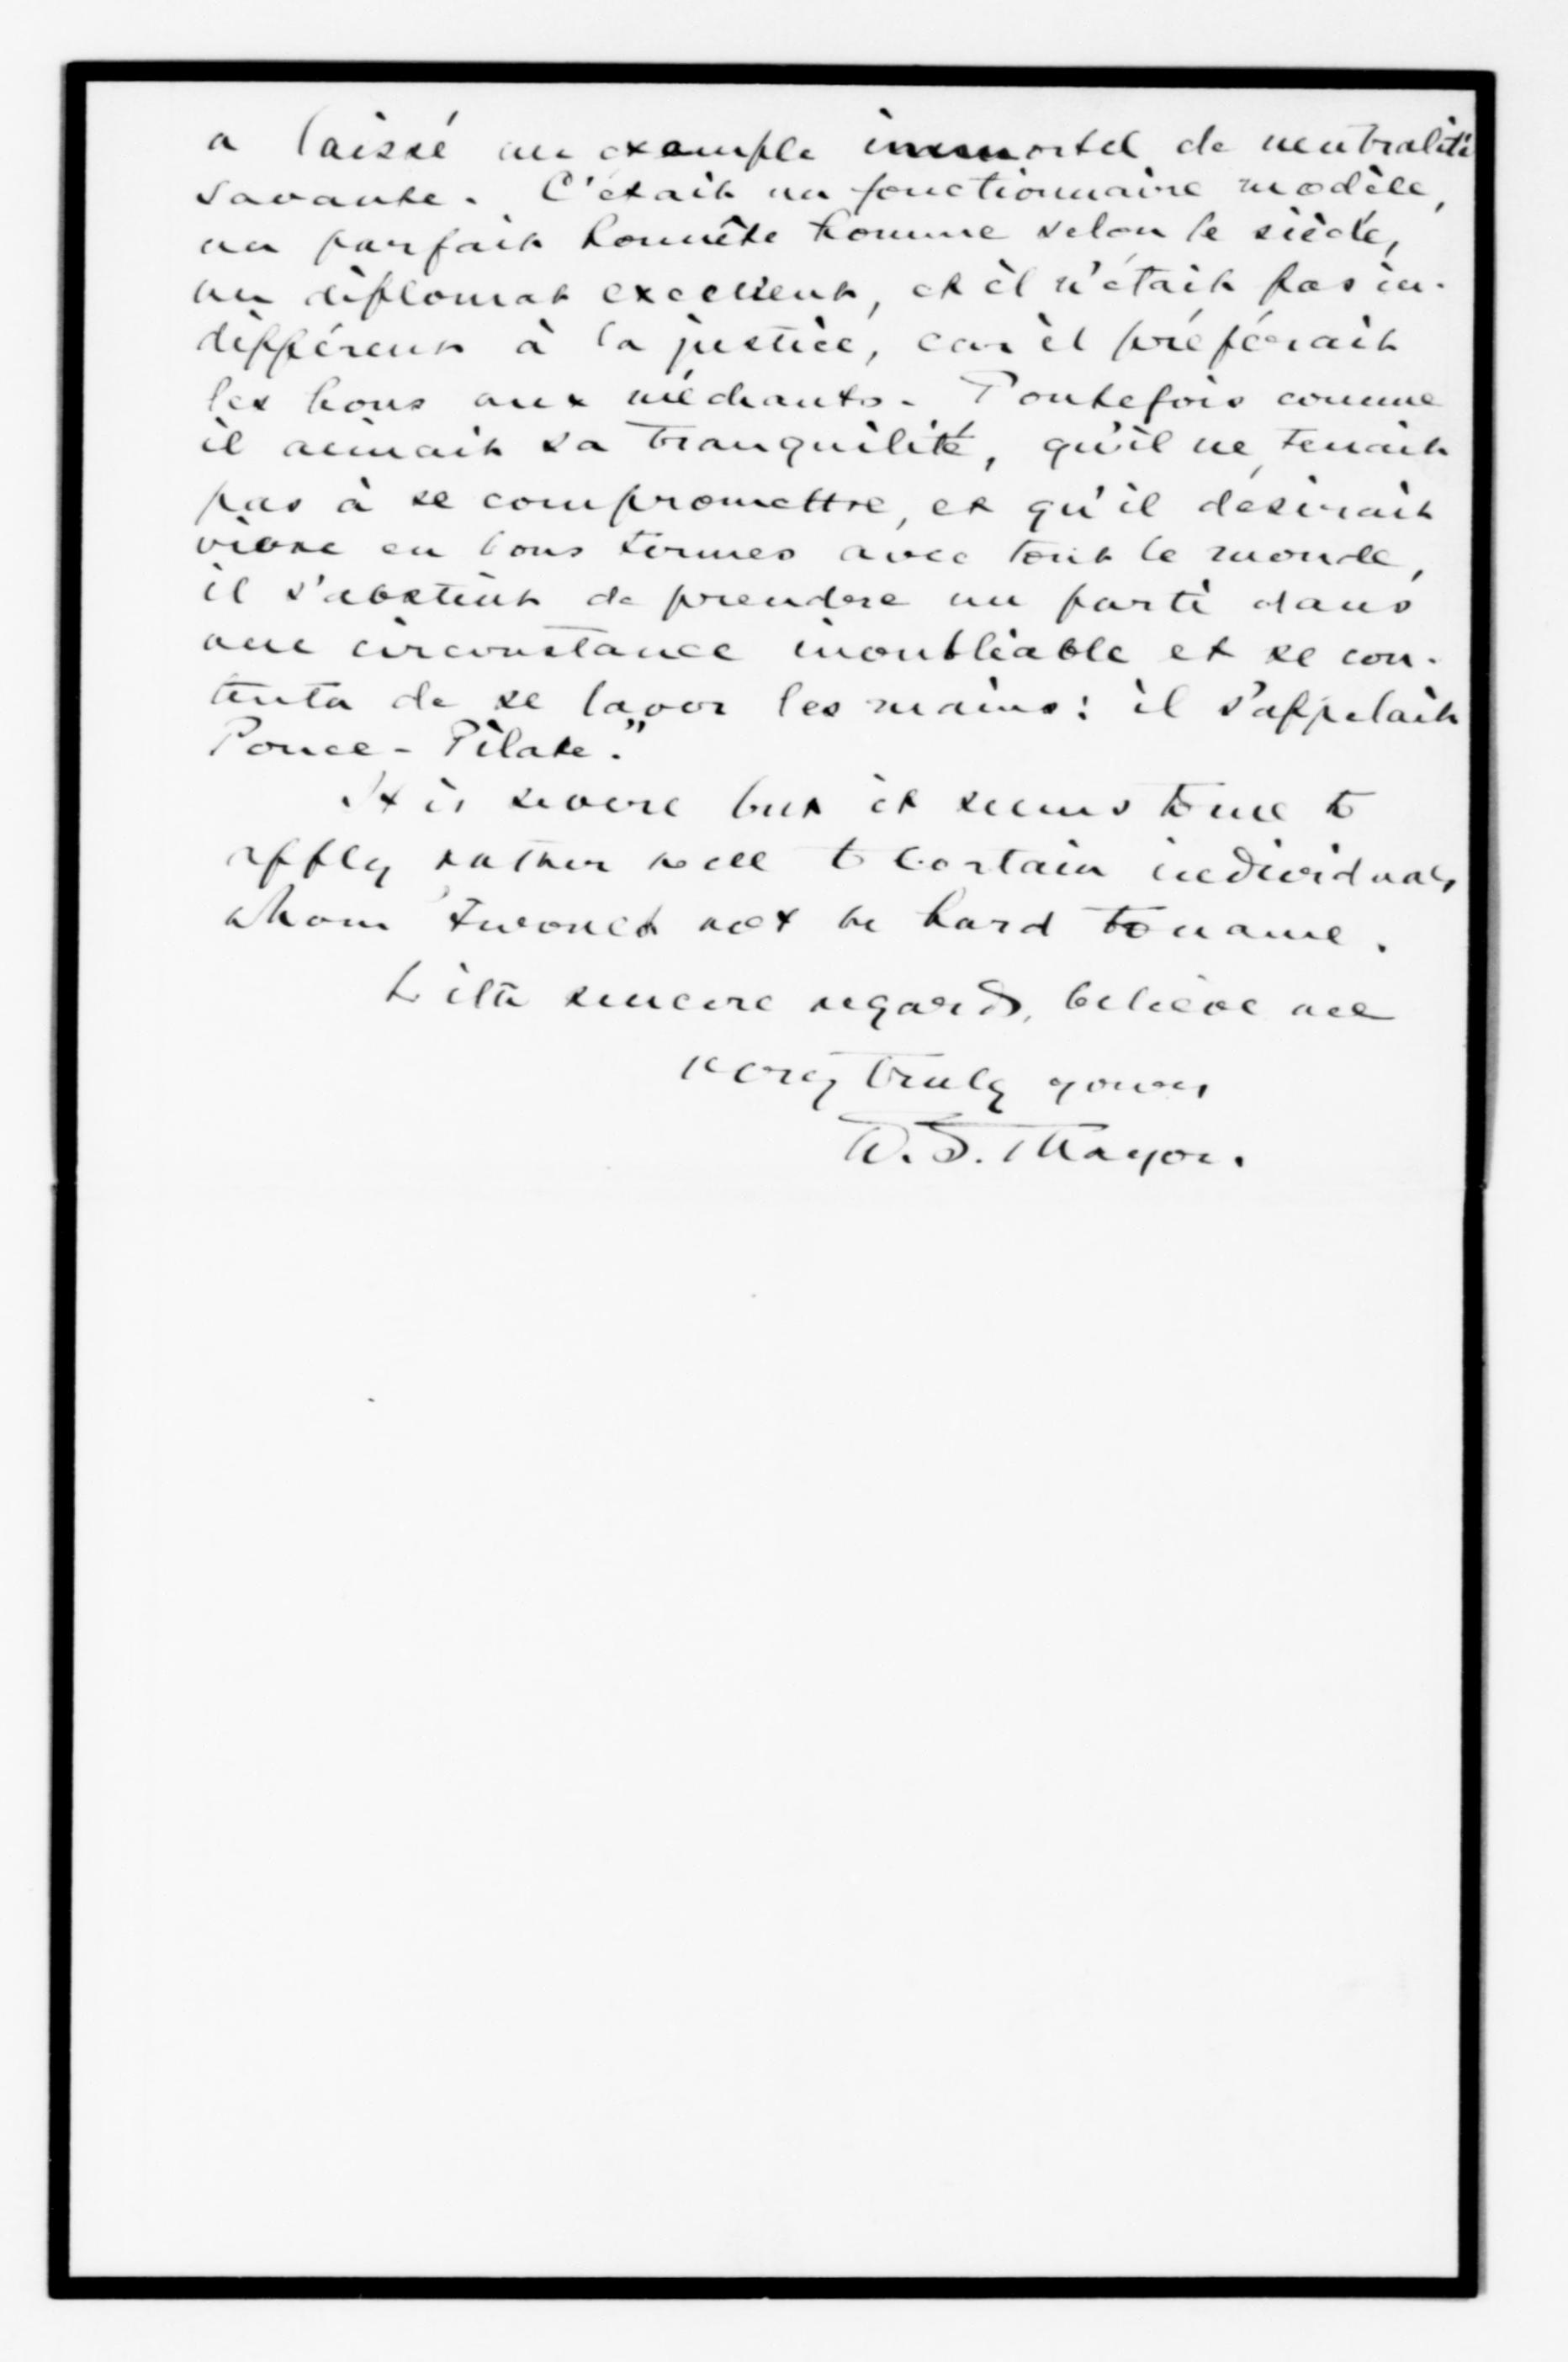 a laissé un exemple immortel de neutralité
savante. C'était un fonctionnaire modèle,
un parfait honnête homme selon le siècle,
un diplomat excellent, et il n'était pas in-
différent à la justice, car il préférait
les bons aux méchants. Toutefois comme
il aimait sa tranquilité, qu'il ne tenait
pas à se compromettre, et qu'il désirait
vivre en bons termes avec tout le monde,
il s'abstint de prendre un parti dans
une circonstance inoubliable et se con-
tenta de se laver les mains: il s'appelait
Ponce-Pilate."
It is severe but it seems to me to
apply rather well to certain individuals
whom 'twould not be hard to name.
With sincere regards, believe me
very truly yours
W. S. Thayer.